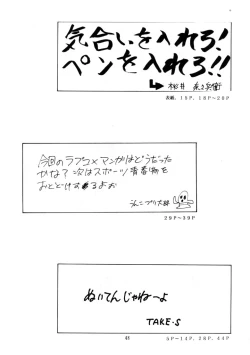 気合いを入れろ!
ペンを入れろ!!
表紙、15P、18P〜28P
今回のラブコメマンガはどうだった
かな? 次はスポーツ青春物を
おとどけするよお
うんこづり大林
29P〜39P
ぬいてんじゃねーよ
TAKE-S
83
5P〜14P、28P、44P